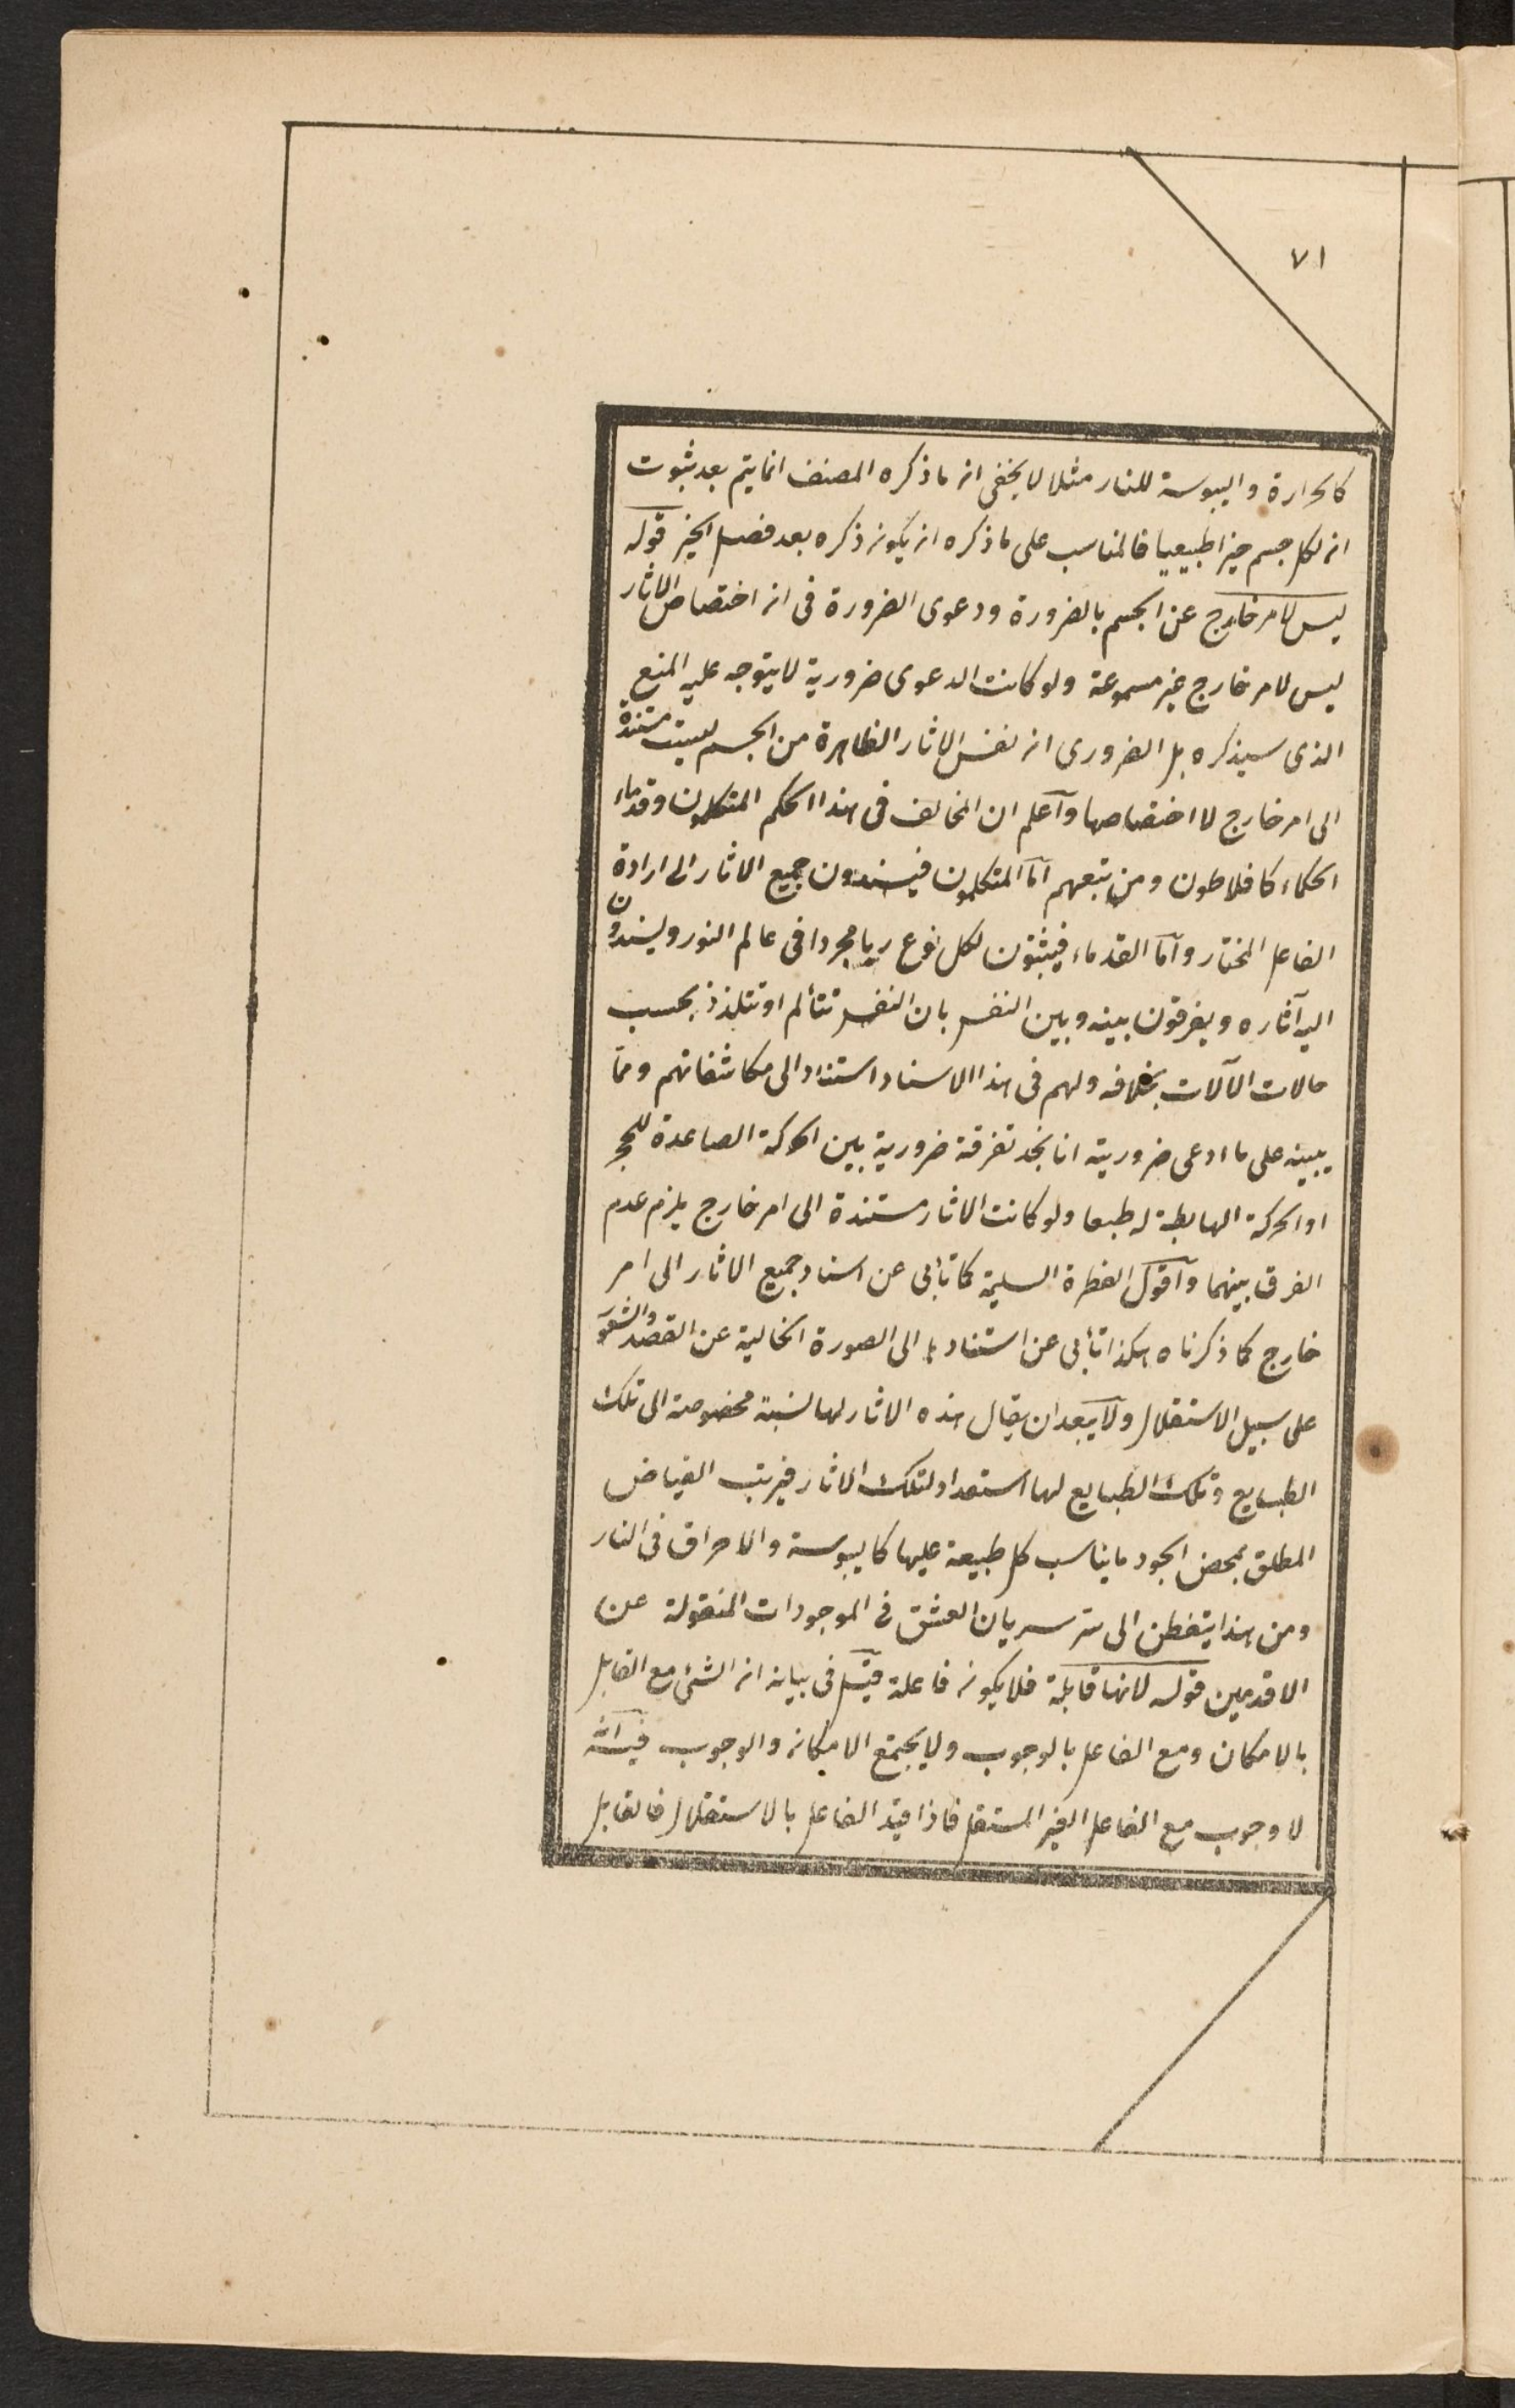 ٧١
كالحرارة واليبوسة للنار مثلا لا يخفى ان ما ذكره المصنف انما يتم بعد ثبوت
ان لكل جسم حيزا طبيعيا فالمناسب على ما ذكره ان يكون ذكره بعد فصل الحيز قوله
ليس لامر خارج عن الجسم بالضرورة ودعوى الضرورة فى ان اختصاص الاثار
ليس لامر خارج غير مسموعة ولو كانت الدعوى ضرورية لا يتوجه عليه المنع
الذى سيذكره بل الضرورى ان نفس الاثار الظاهرة من الجسم ليست مستندة
الى امر خارج لا اختصاصها وآعلم ان المخالف فى هذا الحكم المتكلمون وقدماء
الحكماء كافلاطون ومن تبعهم آما المتكلمون فيسندون جميع الاثار الى ارادة
الفاعل المختار وآما القدماء فيثبتون لكل نوع ربا مجردا فى عالم النور ويسندون
اليه آثاره ويفرقون بينه وبين النفس بان النفس تتألم او تتلذذ بحسب
حالات الآلات بخلافه ولهم فى هذا الاسناد استناد الى مكاشفاتهم ومما
يبينه على ما ادعى ضروريته انا نجد تفرقة ضرورية بين الحركة الصاعدة للحجر
او الحركة الهابطة له طبعا ولو كانت الاثار مستندة الى امر خارج يلزم عدم
الفرق بينهما وآقول الفطرة السليمة كما تأبى عن اسناد جميع الاثار الى امر
خارج كما ذكرناه هكذا تأبى عن استنادها الى الصورة الخالية عن القصد والشعور
على سبيل الاستقلال ولا يبعد ان يقال هذه الاثار لها نسبة مخصوصة الى تلك
الطبايع وتلك الطبايع لها استعداد لتلك الاثار فيرتب الفياض
المطلق بمحض الجود ما يناسب كل طبيعة عليها كاليبوسة والاحراق فى النار
ومن هذا يتفطن الى سر سريان العشق فى الموجودات المنقولة عن
الاقدمين قوله لانها قابلة فلا يكون فاعلة قيل فى بيانه ان الشئ مع القابل
بالامكان ومع الفاعل بالوجوب ولا يجتمع الامكان والوجوب فيه انه
لا وجوب مع الفاعل الغير المستقل فاذا قيد الفاعل بالاستقلال فالقابل